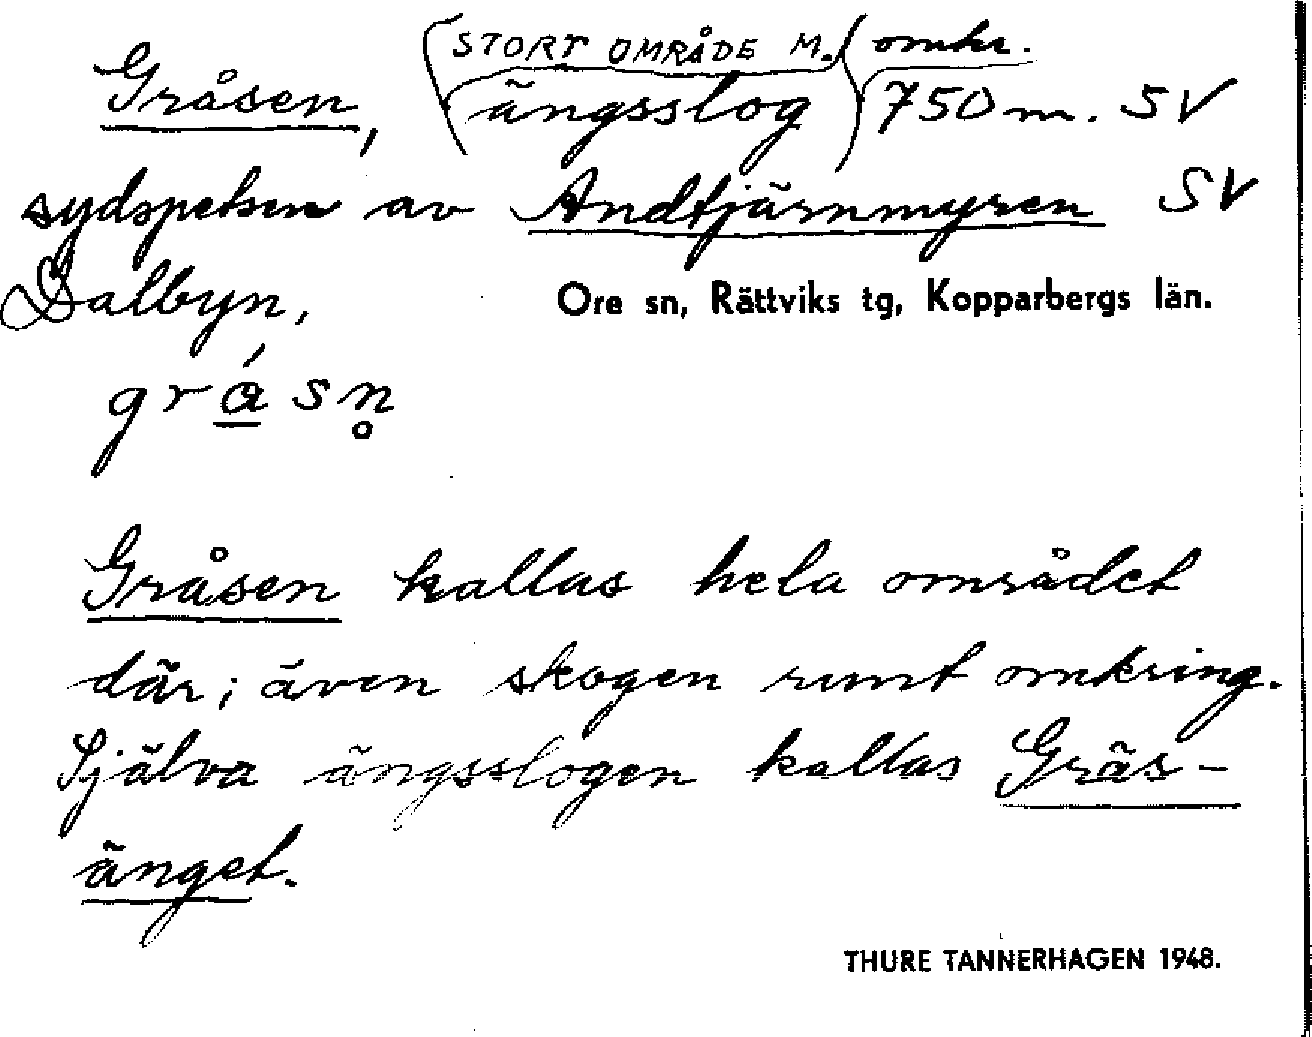 STORT OMRÅDE M. omkr.
Gråsen, ängsslog 750 m. SV
sydspetsen av Andtjärnmyren SV
Dalbyn,
Ore sn, Rättviks tg, Kopparbergs län.
grásn̥
Gråsen kallas hela området
där; även skogen runt omkring.
Själva ängsslogen kallas Gräs-
änget.
THURE TANNERHAGEN 1948.